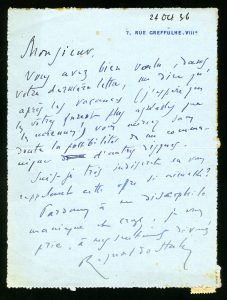 26 Oct 36
7, RUE GREFFULHE. VIIIᵉ
Monsieur,
Vous avez bien voulu, dans
votre dernière lettre, me dire qu'
après les vacances (j'espère que
les vôtres furent plus agréables que
les miennes) vous auriez sans
doute la possibilité de me commu-
niquer d'autres
Suis-je très indiscret en vous
rappelant cette offre si aimable?
Pardonnez à un discophile
maniaque et croyez, je vous
prie, à mes sentiments
Reynaldo Hahn